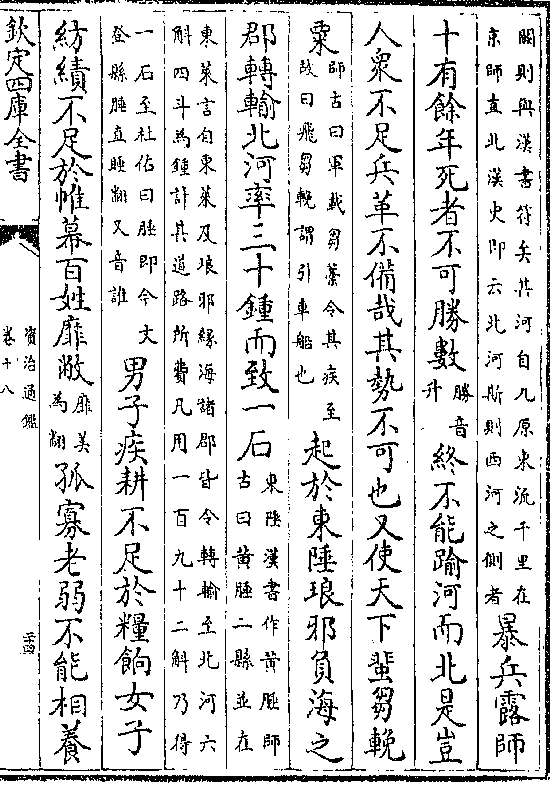 闕則與漢書符矣其河自九原東流千里在
京師直北漢史即云北河斯則西河之側者
暴兵露師
十有餘年死者不可勝數
勝音
升
終不能踰河而北是豈
人衆不足兵革不備哉其勢不可也又使天下蜚芻輓
粟
師古曰軍載芻藳令其疾至
故曰飛芻輓謂引車船也
起於東陲琅邪負海之
郡轉輸北河率三十鍾而致一石
東陲漢書作黄腄師
古曰黄腄二縣並在
東萊言自東萊及琅邪緣海諸郡皆令轉輸至北河六
斛四斗為鍾計其道路所費凡用一百九十二斛乃得
一石至杜佑曰腄即今文
登縣腄直睡翻又音誰
男子疾耕不足於糧餉女子
紡績不足於帷幕百姓靡敝
靡美
為翻
孤寡老弱不能相養
欽定四庫全書
資治通鑑
卷十八
二十四